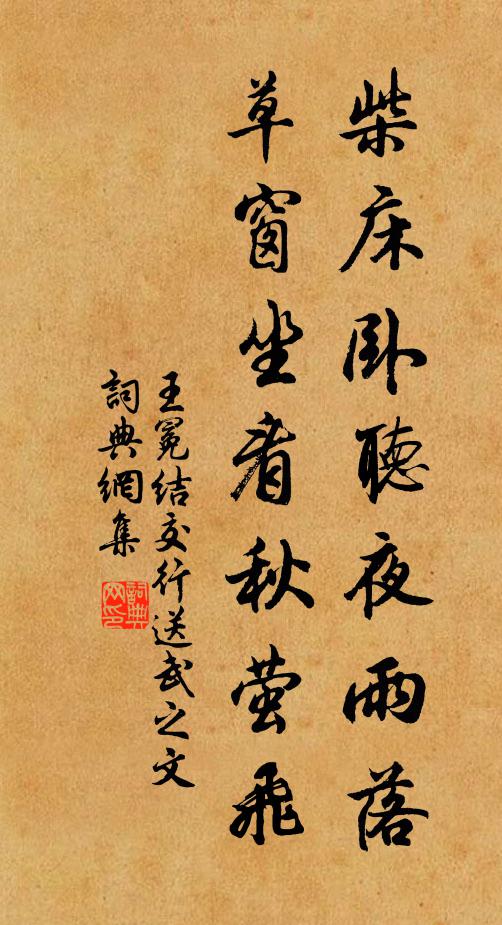 柴床卧聽夜雨落
草窗坐看秋萤飛
王冕结交行送武之文
詞典網集
詞典网印